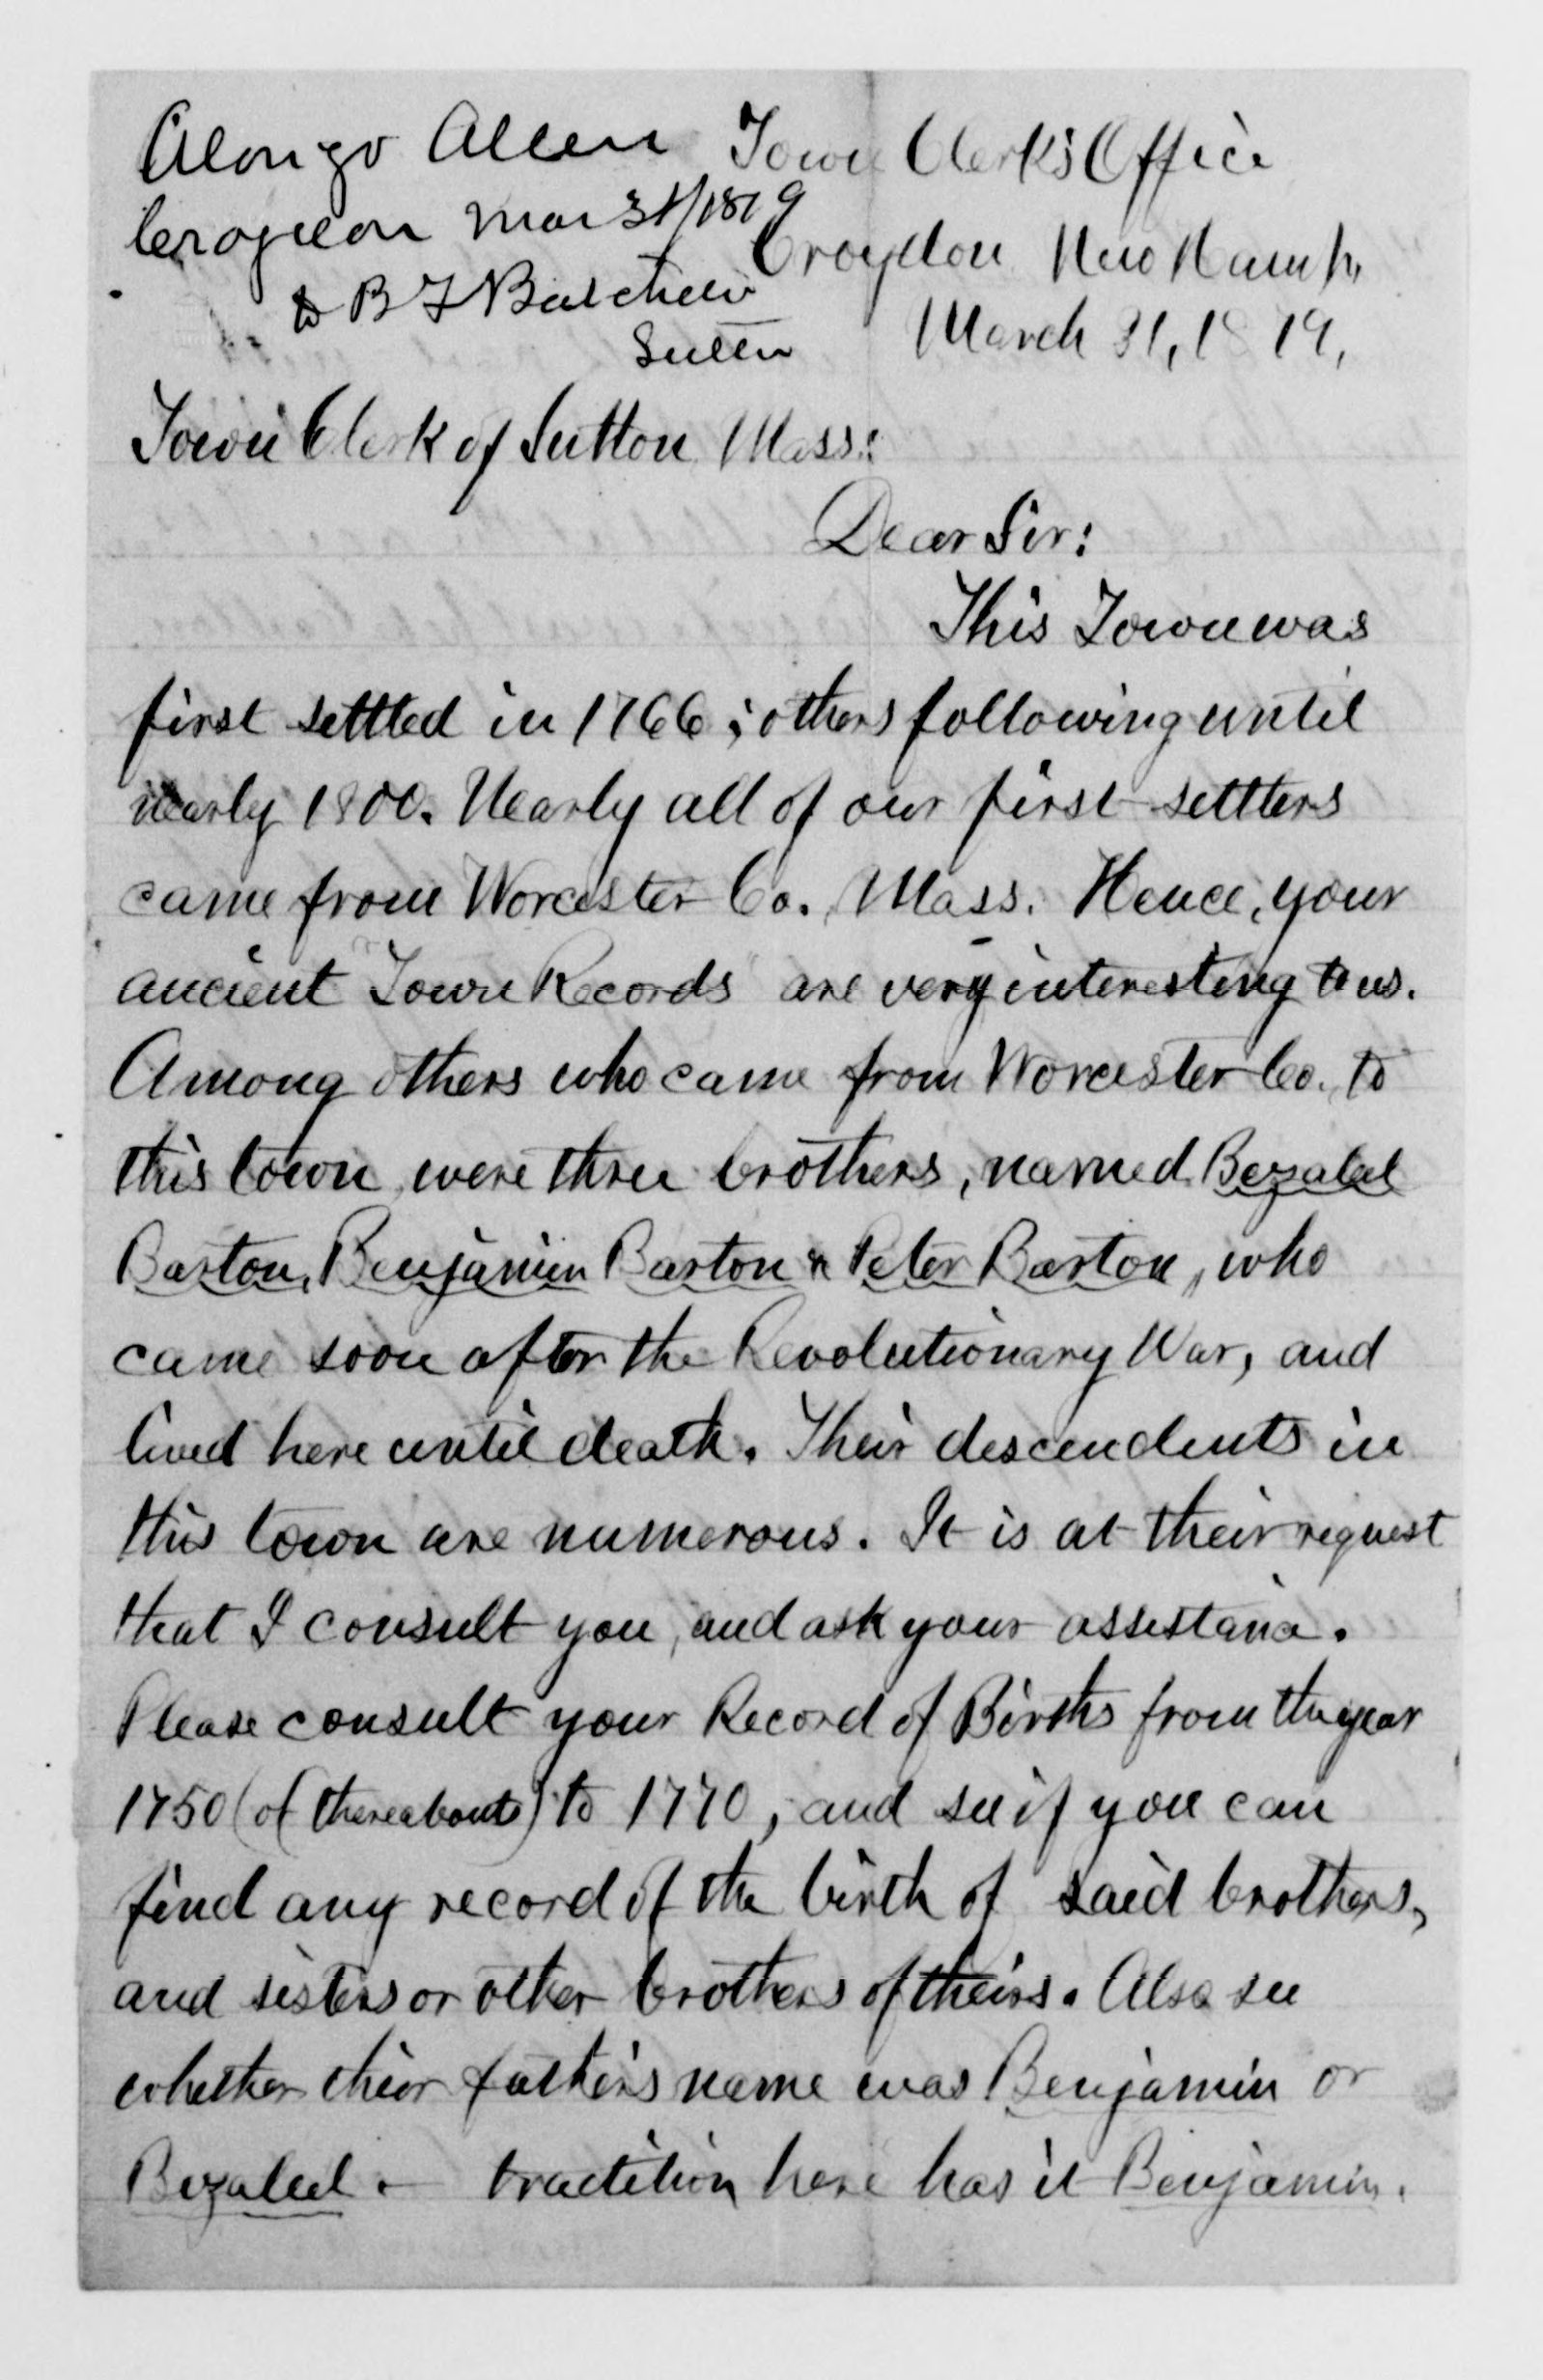 Alonzo Allen
Croydon Mar 31/1879
to B F Batcheler
Sutton
Town Clerk's Office
Croydon New Hamp.
March 31, 1879,
Town Clerk of Sutton Mass:
Dear Sir:
This Town was
first settled in 1766; others following until
nearly 1800. Nearly all of our first settlers
came from Worcester Co. Mass. Hence, your
ancient Town Records are very interesting to us.
Among others who came from Worcester Co. to
this town, were three brothers, named Bezaleel
Barton, Benjamin Barton & Peter Barton, who
came soon after the Revolutionary War, and
lived here until death. Their descendents in
this town are numerous. It is at their request
that I consult you, and ask your assistance.
Please consult your Record of Births from the year
1750 (of thereabouts) to 1770, and see if you can
find any record of the birth of said brothers,
and sisters or other brothers of theirs. Also see
whether their father's name was Benjamin or
Bezaleel. — tradition here has it Benjamin.